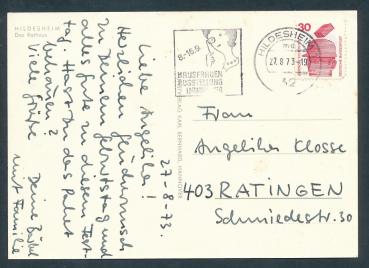 HILDESHEIM
Das Rathaus
27-8-73.
Liebe Angelika!
Herzlichen Glückwunsch
zu Deinem Geburtstag und
alles Gute zu diesem Fest-
tag. Hast Du das Paket
bekommen?
Viele Grüße
Deine
mit Familie
VERLAG KARL BERNHARD, HANNOVER
8.-16.9.
HAUSFRAUEN
AUSSTELLUNG
HILDESHEIM
27.8.73-19
30
DEUTSCHE BUNDESPOST
Frau
Angelika Klosse
403 RATINGEN
Schmiedestr. 30